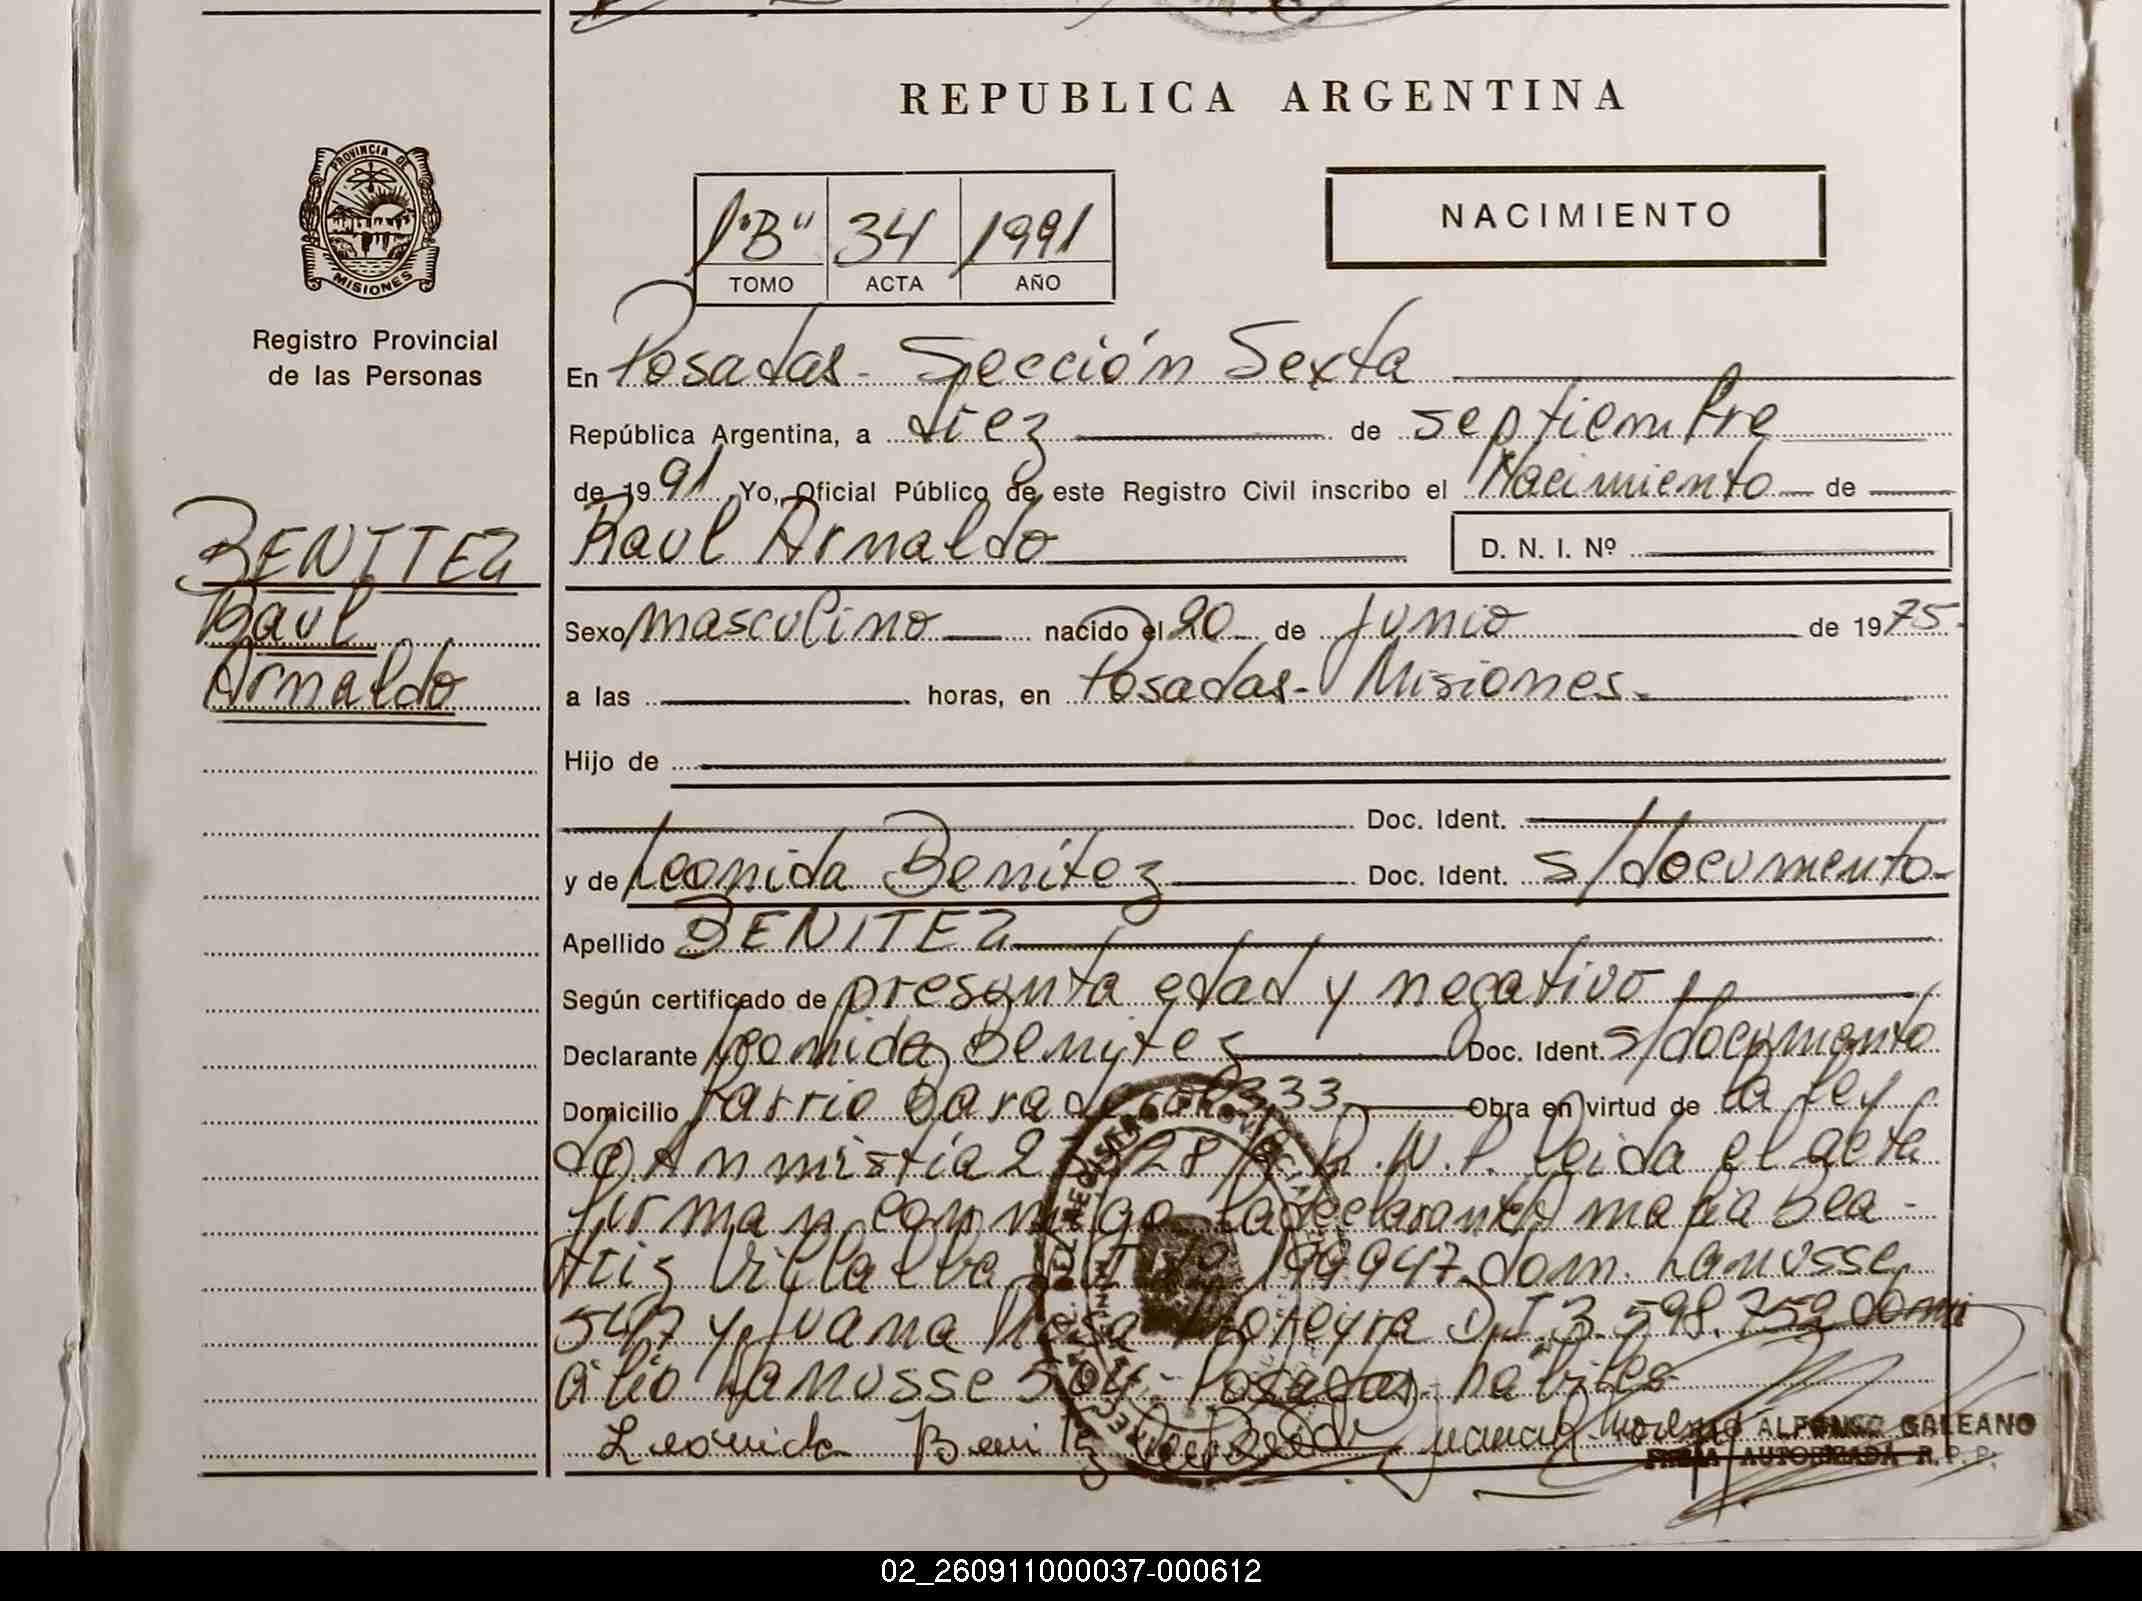 REPUBLICA ARGENTINA
PROVINCIA DE
MISIONES
Registro Provincial
de las Personas
1 "B" 34 1991
TOMO ACTA AÑO
NACIMIENTO
BENITEZ
Raul
Arnaldo
En Posadas - Sección Sexta
República Argentina, a diez de septiembre
de 1991 Yo, Oficial Público de este Registro Civil inscribo el Nacimiento de
Raul Arnaldo D. N. I. Nº
Sexo masculino nacido el 20 de junio de 1975.
a las horas, en Posadas - Misiones.
Hijo de
Doc. Ident.
y de Leonida Benítez Doc. Ident. s/documento
Apellido BENITEZ
Según certificado de presunta edad y negativo
Declarante Leonida Benitez Doc. Ident. s/documento
Domicilio barrio 333 Obra en virtud de la ley
de Ammistía leida el acta
firman conmigo la declarante maria Bea-
triz Villalba dom. Lanusse
547 y Juana Rosa Moreyra D.I. 3.598.759 domi
cilio Lanusse 504 - Posadas - habiles
Leonida Benitez
ALFONSO GALEANO
FIRMA AUTORIZADA R.P.P.
02_260911000037-000612